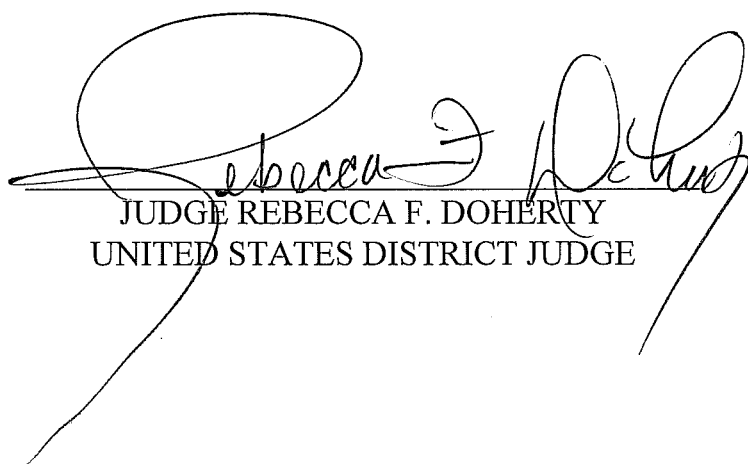 Rebecca F Doherty
JUDGE REBECCA F. DOHERTY
UNITED STATES DISTRICT JUDGE